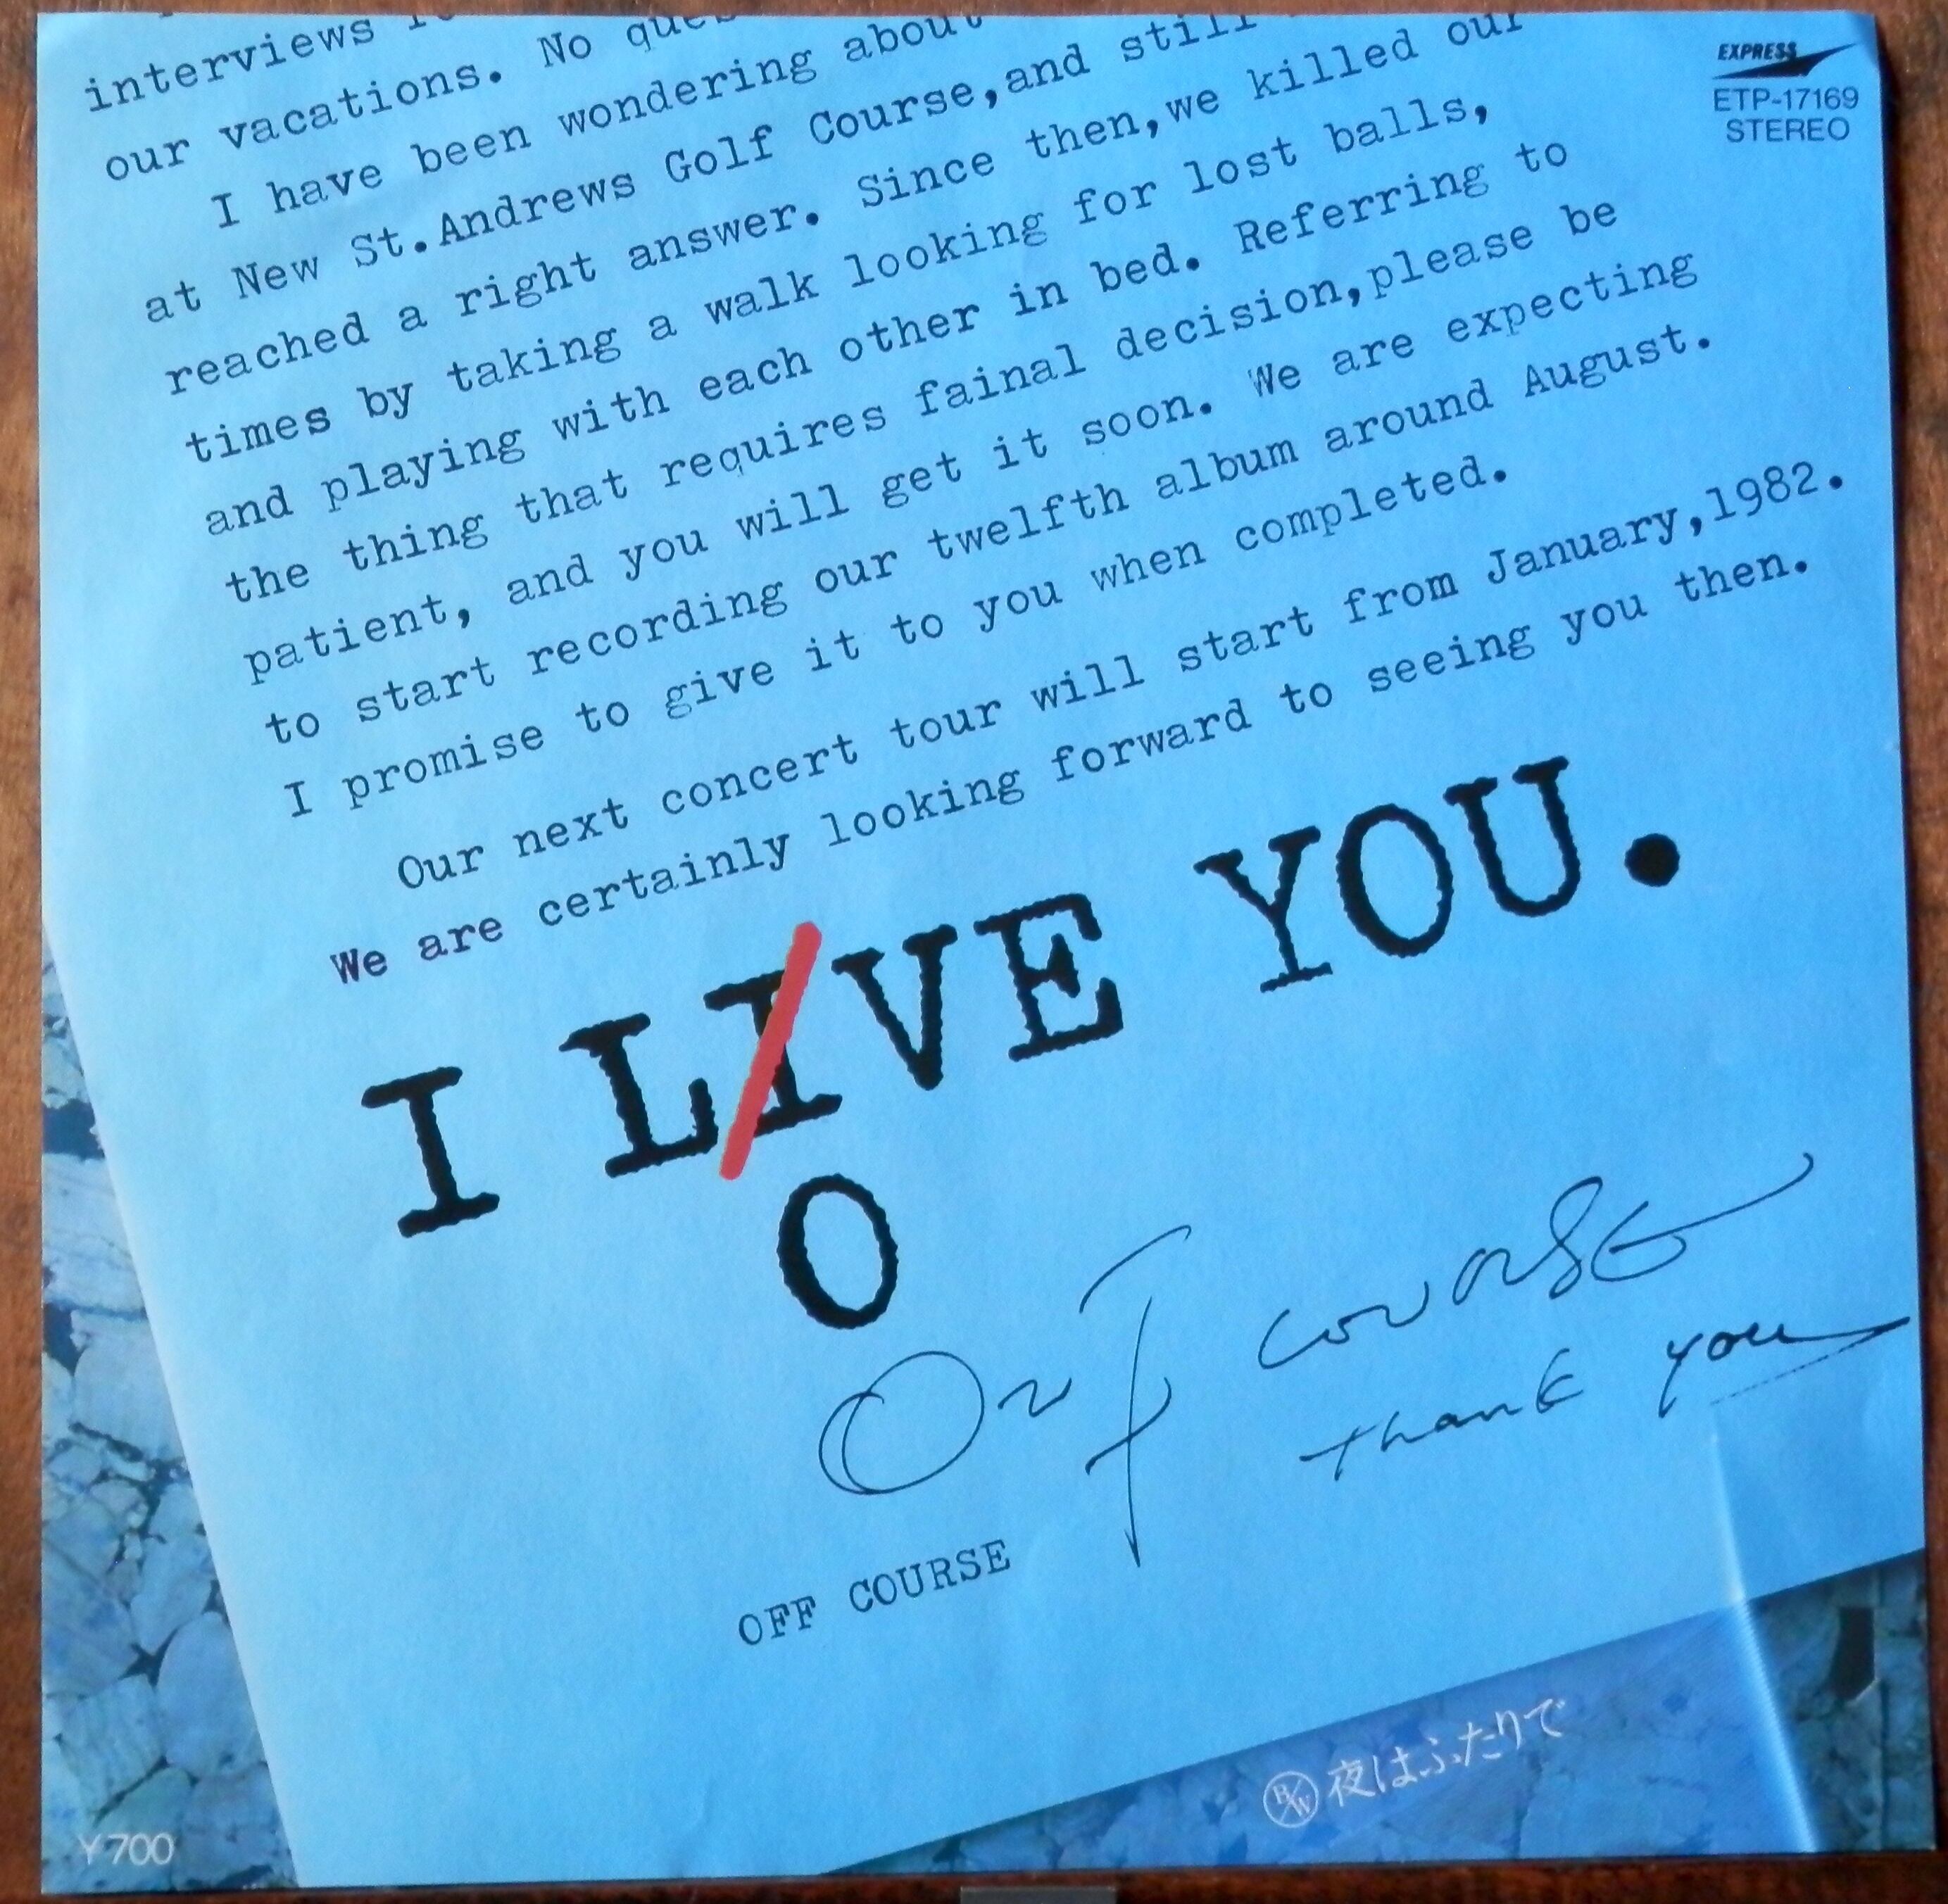 interviews
our vacations. No
I have been wondering about
at New St.Andrews Golf Course,and still
reached a right answer. Since then,we killed our
times by taking a walk looking for lost balls,
and playing with each other in bed. Referring to
the thing that requires fainal decision,please be
patient, and you will get it soon. We are expecting
to start recording our twelfth album around August.
I promise to give it to you when completed.
Our next concert tour will start from January,1982.
We are certainly looking forward to seeing you then.
I LIVE YOU.
O
Off course
thank you
OFF COURSE
B/W 夜はふたりで
Y700
EXPRESS
ETP-17169
STEREO